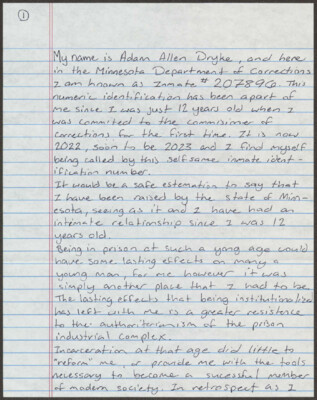 1
My name is Adam Allen Dryke, and here
in the Minnesota Department of Corrections
I am known as Inmate # 207896. This
numeric identification has been apart of
me since I was just 12 years old when I
was commited to the commisioner of
corrections for the first time. It is now
2022, soon to be 2023 and I find myself
being called by this self same inmate ident-
ification number.
It would be a safe estemation to say that
I have been raised by the state of Minn-
esota, seeing as it and I have had an
intimate relationship since I was 12
years old.
Being in prison at such a yong age could
have some lasting effects on many a
young man, for me however it was
simply another place that I had to be.
The lasting effects that being institutionalized
has left with me is a greater resistence
to the authoritarianism of the prison
industrial complex.
Incarceration at that age did little to
"reform" me, or provide me with the tools
necessary to become a sucessful member
of modern society. In retrospect as I